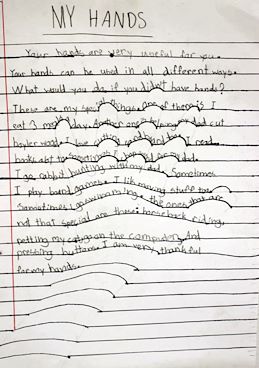 MY HANDS
Your hands are very useful for you.
Your hands can be used in all different ways.
What would you do, if you didn't have hands?
These are my special things. one of there is I
eat 3 day. Another one is my dad cut
I love and I read
books
I go rabbit hunting with my dad. Sometimes
I play board games. I lik moving stuff too.
Sometimes I go swimming. the ones that are
not that special are those: horseback riding,
petting my cat, go on the computer, and
pressing buttons. I am very thankful
for my hands.